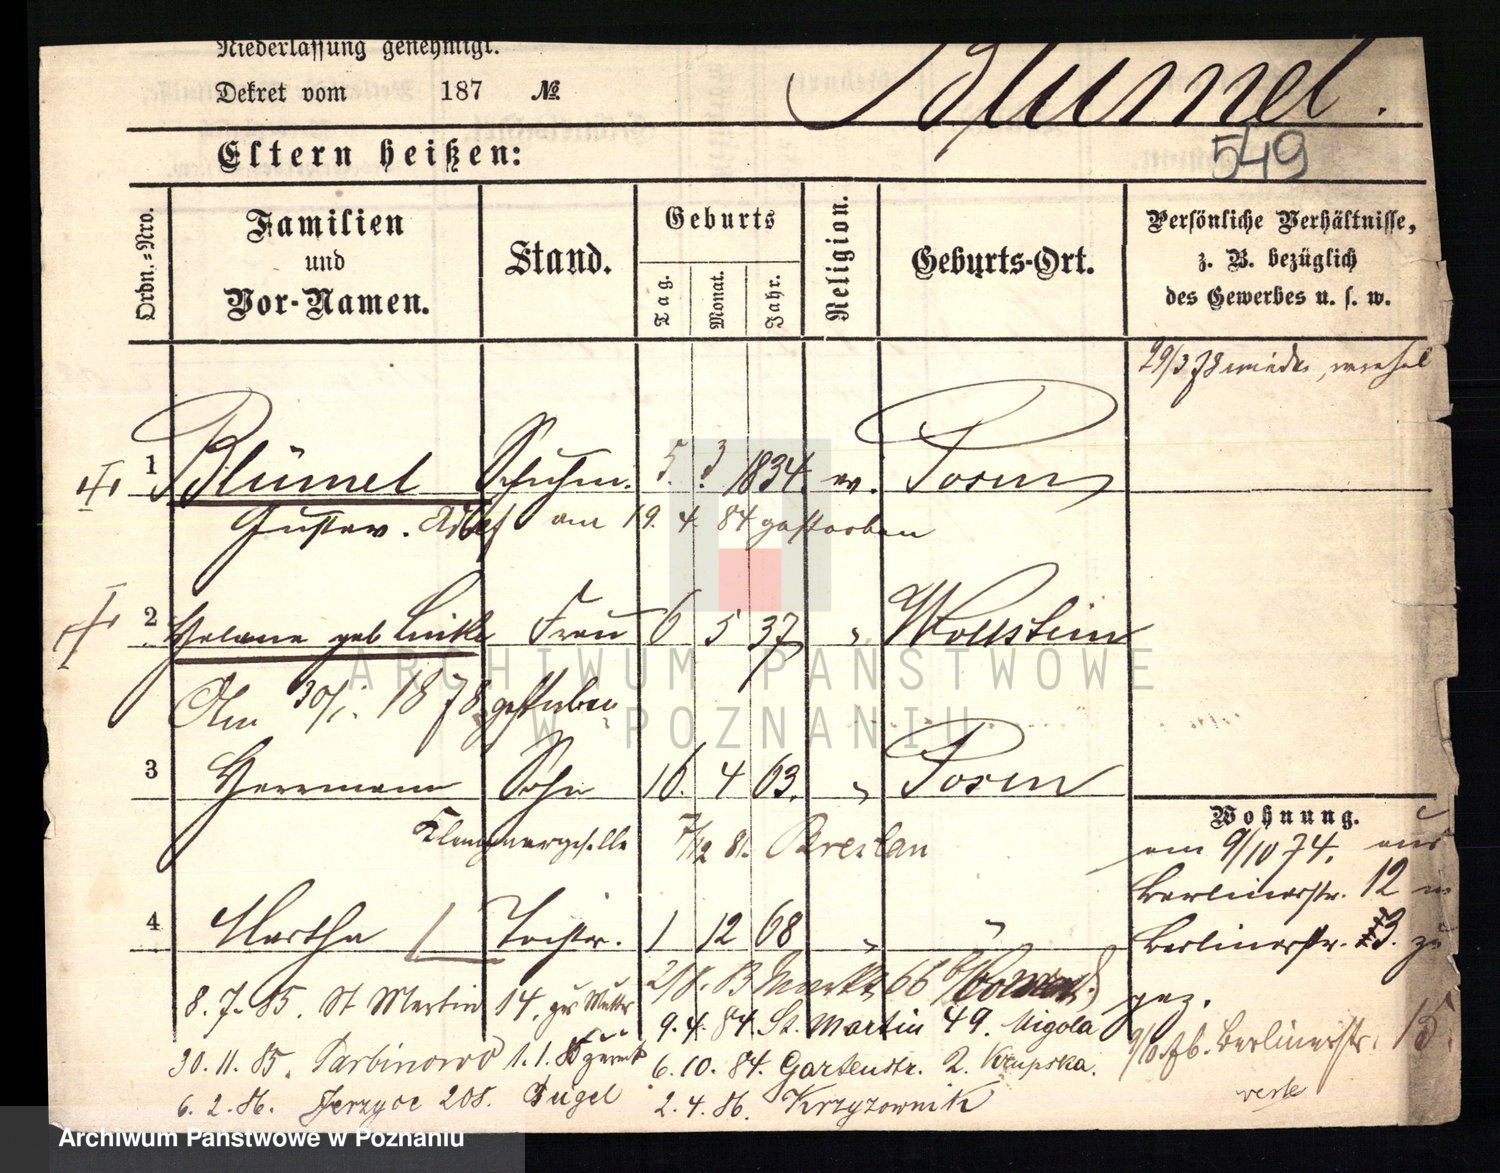 Niederlassung genehmigt.
Dekret vom 187 №
Blümel.
549
Eltern heißen:
Ordn.=Nro.
Familien
und
Vor-Namen.
Stand.
Geburts
Tag.
Monat.
Jahr.
Religion.
Geburts-Ort.
Persönliche Verhältnisse,
z. B. bezüglich
des Gewerbes u. s. w.
1 Blümel Schuhm. 5. 3 1834. ev. Posen
Gustav. Adolf am 19. 4. 84 gestorben
2 Helene geb Linke Frau 6 5 37 " Wollstein
Am 30/1. 1878 gestorben
3 Herrmann Sohn 16. 4 63. " Posen
Klempnergeselle 7/12 81. Breslau
Wohnung.
am 9/10 74. aus
Berlinerstr. 12 n
4 Martha Tochter. 1 12 68 " "
Berlinerstr. 13. zu
gez.
2/8. 83 Markt 66
8. 7. 85. St Martin 14. zur Mutter
9. 4. 84. St. Martin 49. Migola
9/10 76. Berlinerstr. 15.
30. 11. 85. Parbinowo 1. 1. 86 zurück
6. 10. 84. Gartenstr. 2. Krupska.
6. 2. 86. Jerzyce 208. Bugel
2. 4. 86. Krzyzownik
ARCHIWUM PAŃSTWOWE
W POZNANIU
Archiwum Państwowe w Poznaniu